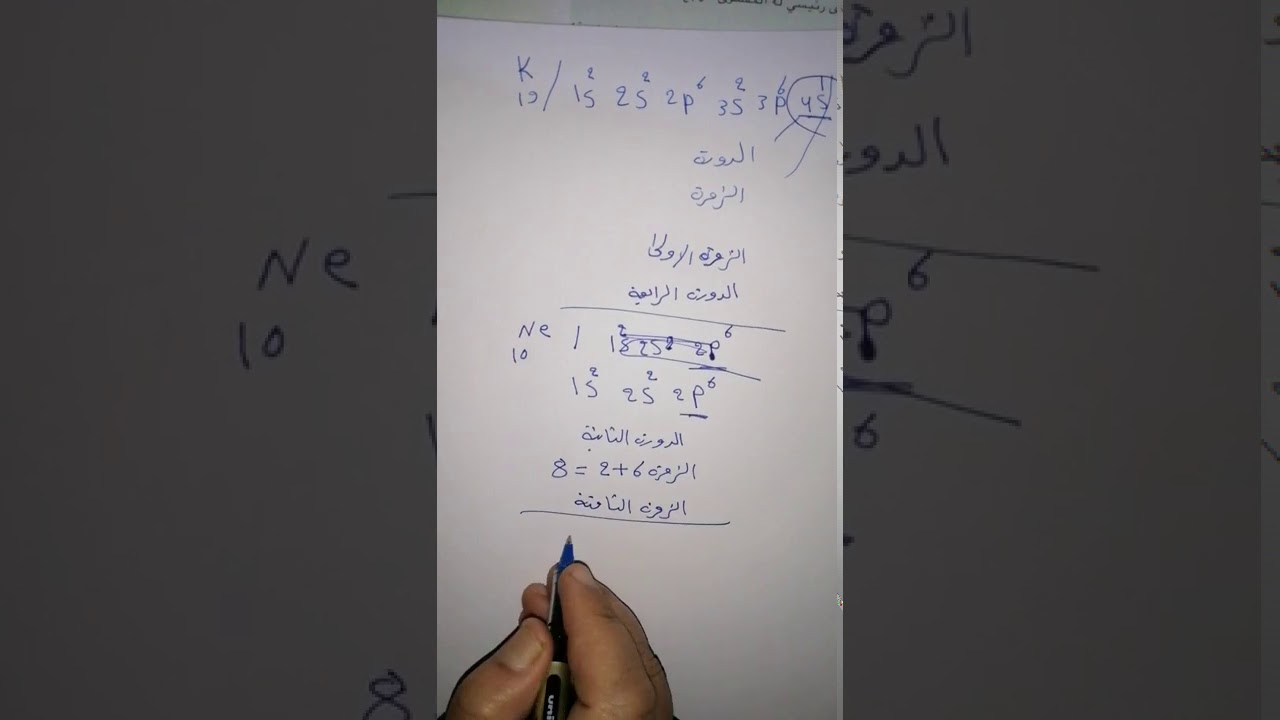 K / 1s² 2s² 2p⁶ 3s² 3p⁶ 4s¹
19
الدورة
الزمرة
الزمرة الاولى
الدورة الرابعة
Ne / 1s² 2s² 2p⁶
10
1s² 2s² 2p⁶
الدورة الثانية
الزمرة 6+2 = 8
الزمرة الثامنة